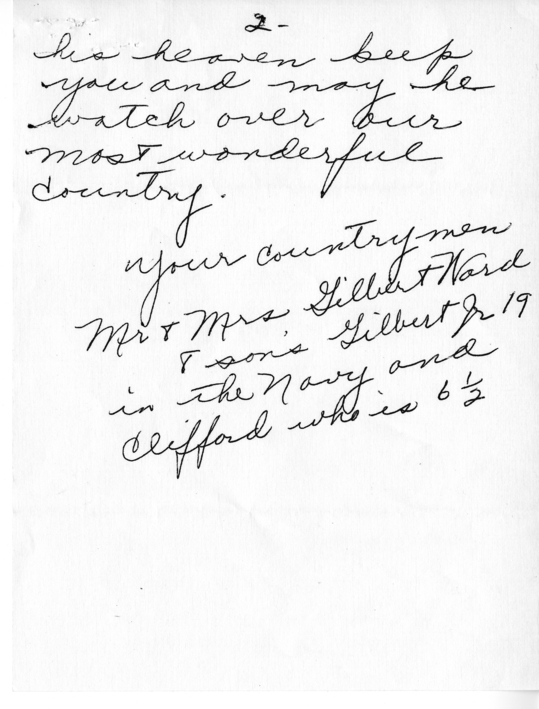 2-
his heaven keep
you and may he
watch over our
most wonderful
country.
Your countrymen
Mr & Mrs Gilbert Ward
& son's Gilbert Jr 19
in the Navy and
Clifford who is 6 1/2